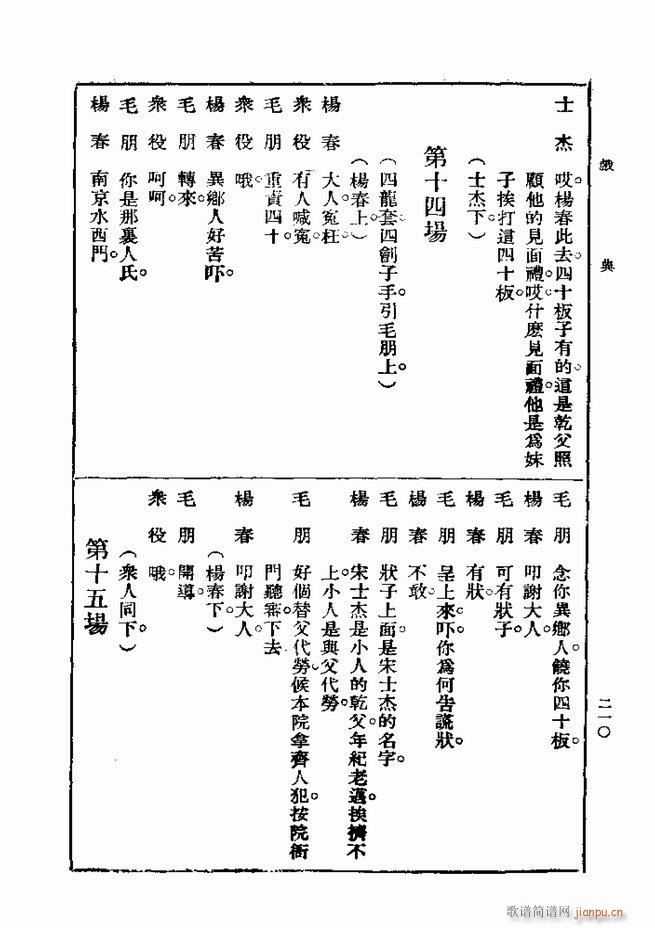 戲典
二一〇
士杰　哎楊春此去四十板子有的這是乾父照
顧他的見面禮。哎什麽見面禮。他是爲妹
子挨打這四十板。
（士杰下。）
第十四場
（四龍套四劊子手引毛朋上。）
（楊春上）
楊春　大人冤枉
衆役　有人喊冤。
毛朋　重責四十。
衆役　哦。
楊春　異鄉人好苦吓。
毛朋　轉來。
衆役　呵呵。
毛朋　你是那裏人氏。
楊春　南京水西門。
毛朋　念你異鄉人。饒你四十板。
楊春　叩謝大人。
毛朋　可有狀子。
楊春　有狀。
毛朋　呈上來吓你爲何告謊狀。
楊春　不敢。
毛朋　狀子上面是宋士杰的名字。
楊春　宋士杰是小人的乾父。年紀老邁。挨擠不
上。小人是與父代勞。
毛朋　好個替父代勞。候本院拿齊人犯。按院衙
門聽審下去
楊春　叩謝大人。
（楊春下。）
毛朋　開導。
衆役　哦。
（衆人同下。）
第十五場
歌谱简谱网 jianpu.cn